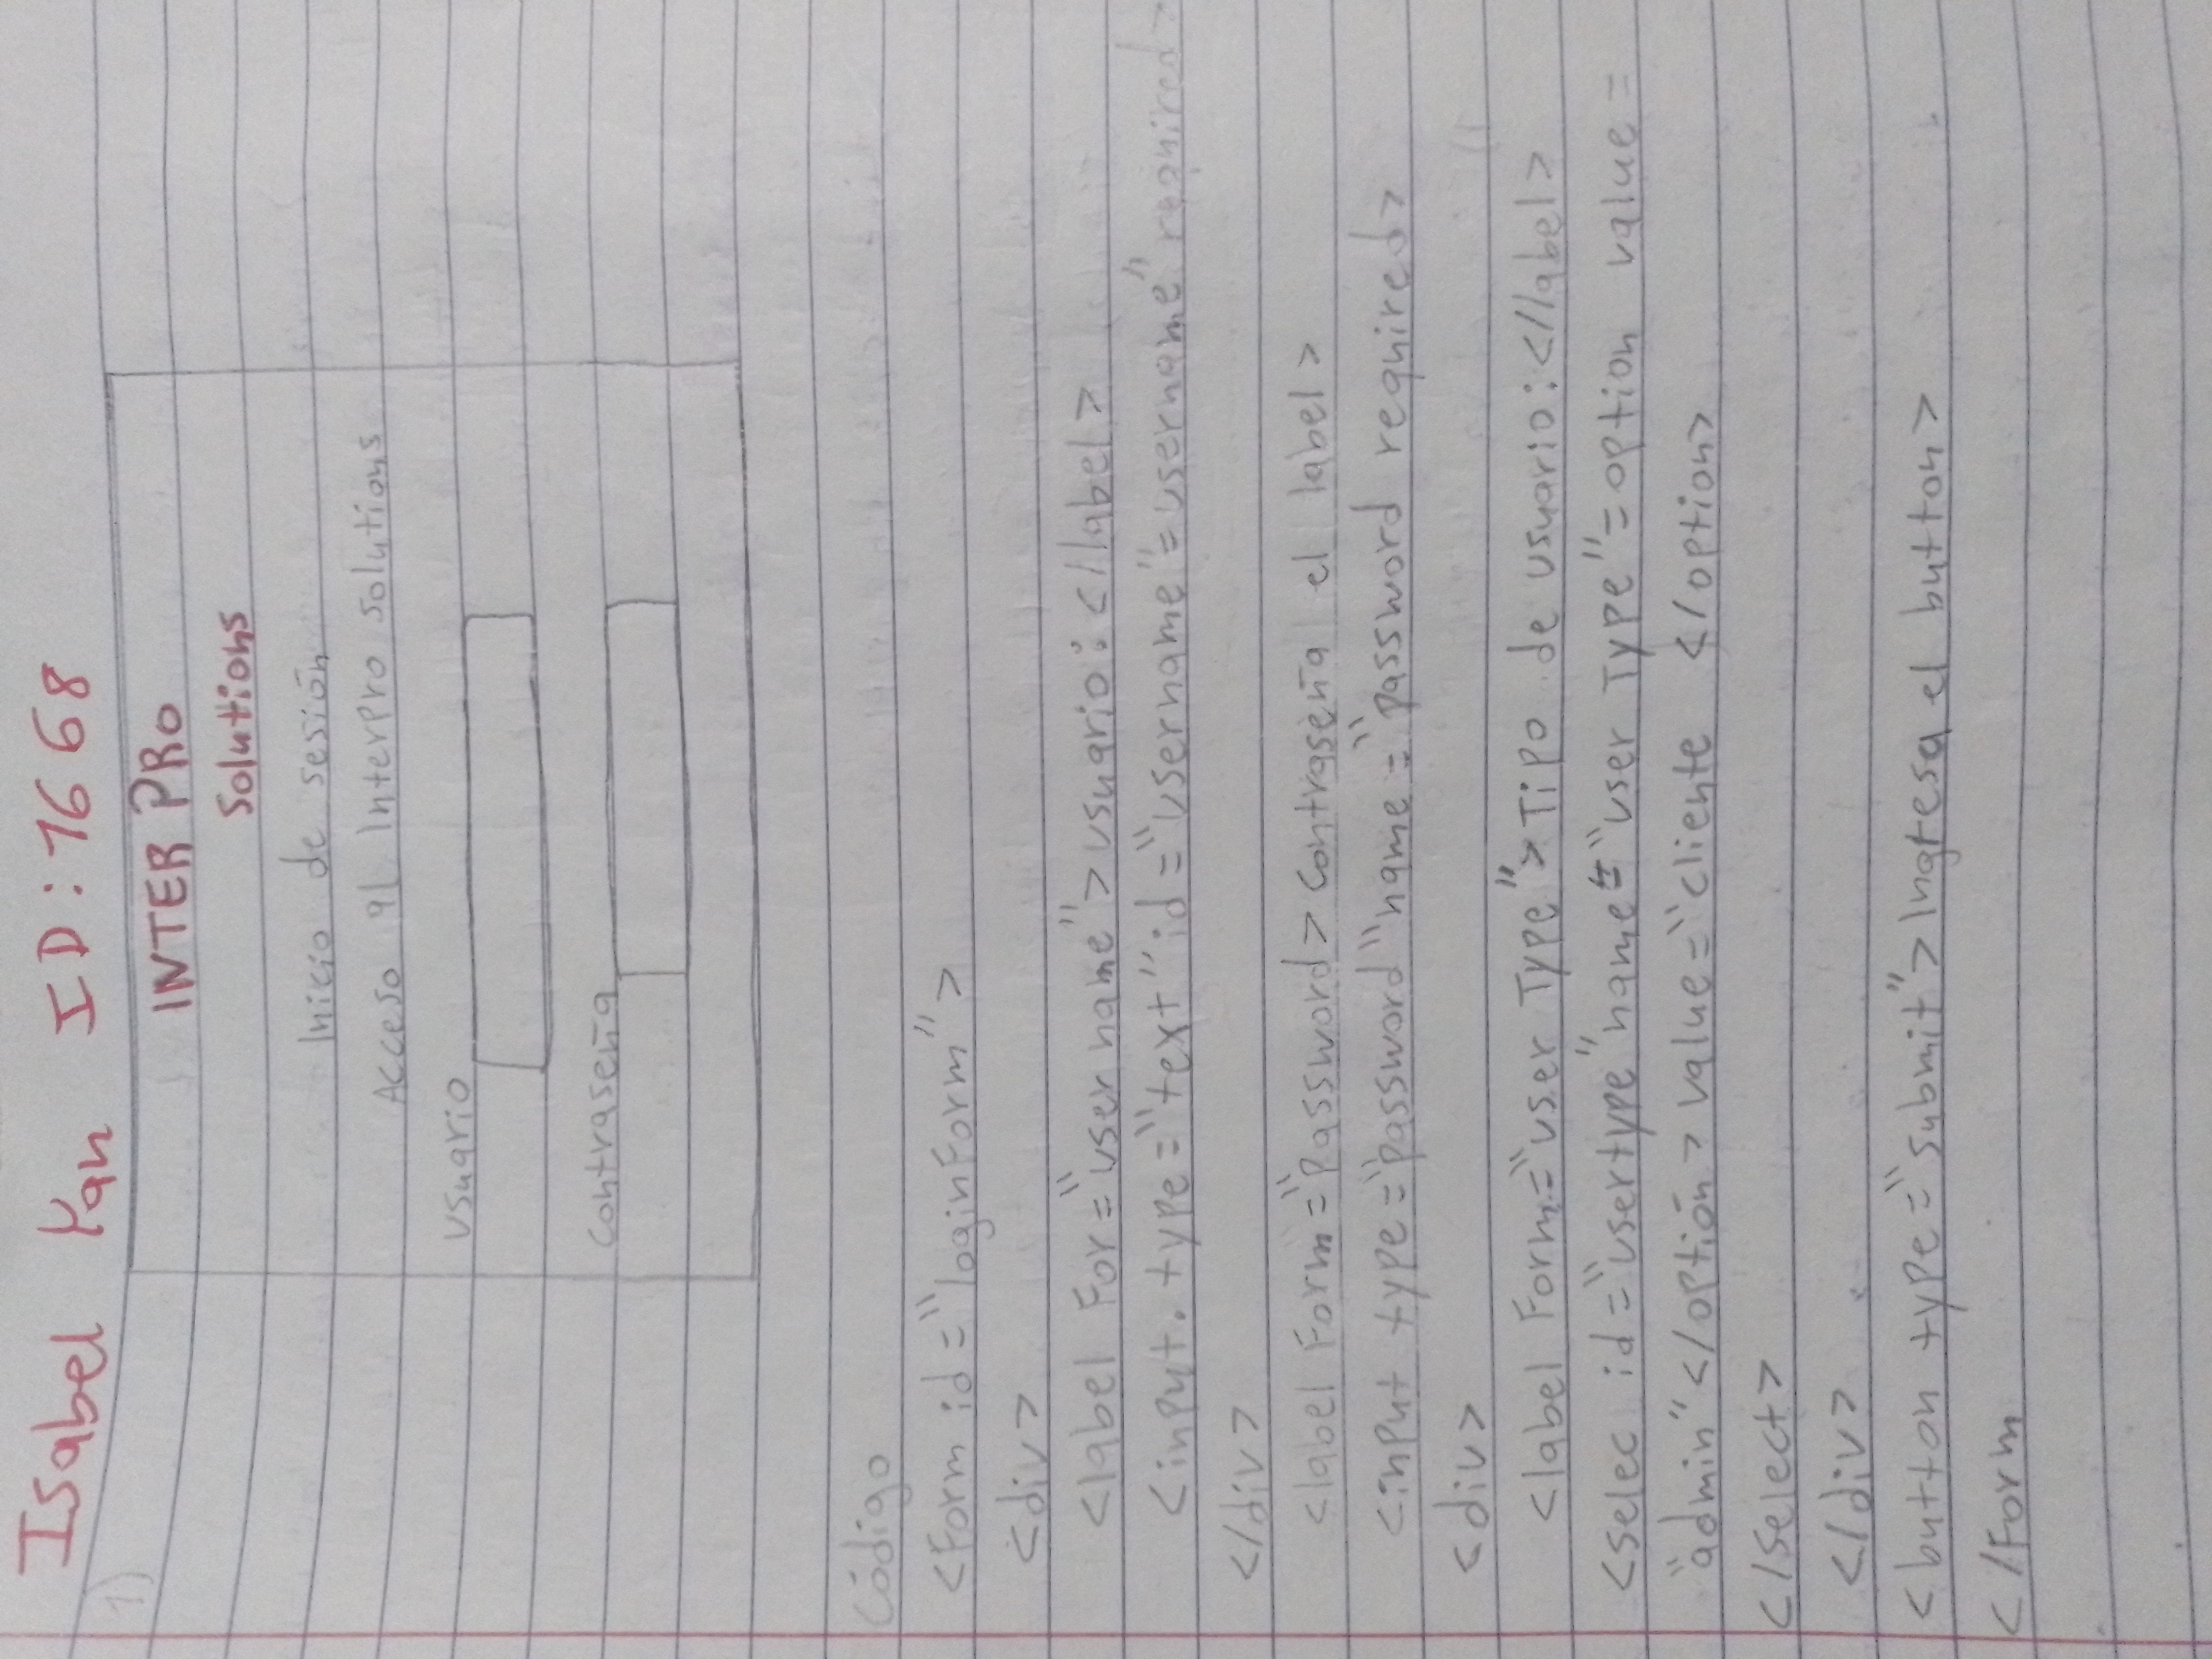 Isabel Kan ID: 1668
1)
INTER PRO
Solutions
Inicio de sesión
Acceso al InterPro Solutions
Usuario
Contraseña
Código
<Form id="loginForm">
<div>
<label For="user name">usuario:<//label>
<input. type="text" id="username"=username" required>
</div>
<label Form="Password> Contraseña el label>
<input type="Password" name="password required>
<div>
<label Form="user Type"> Tipo de usuario:<//label>
<selec id="usertype" name="user Type"=option value=
"admin"</option> value="cliente </option>
</select>
</div>
<button type="submit">Ingresa el button>
</Form